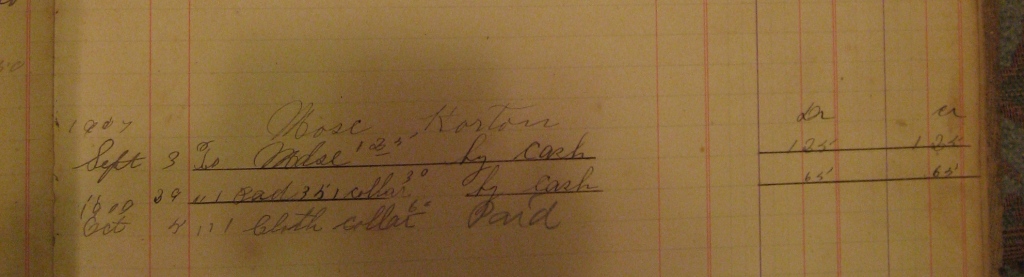 1887 Mose Horton Dr Cr
Sept 3 To Mdse 1 25 by cash 125 125
29 " 1 Pad 35 1 collar 30 by cash 65 65
Oct 5 " 1 Cloth collar 60 Paid